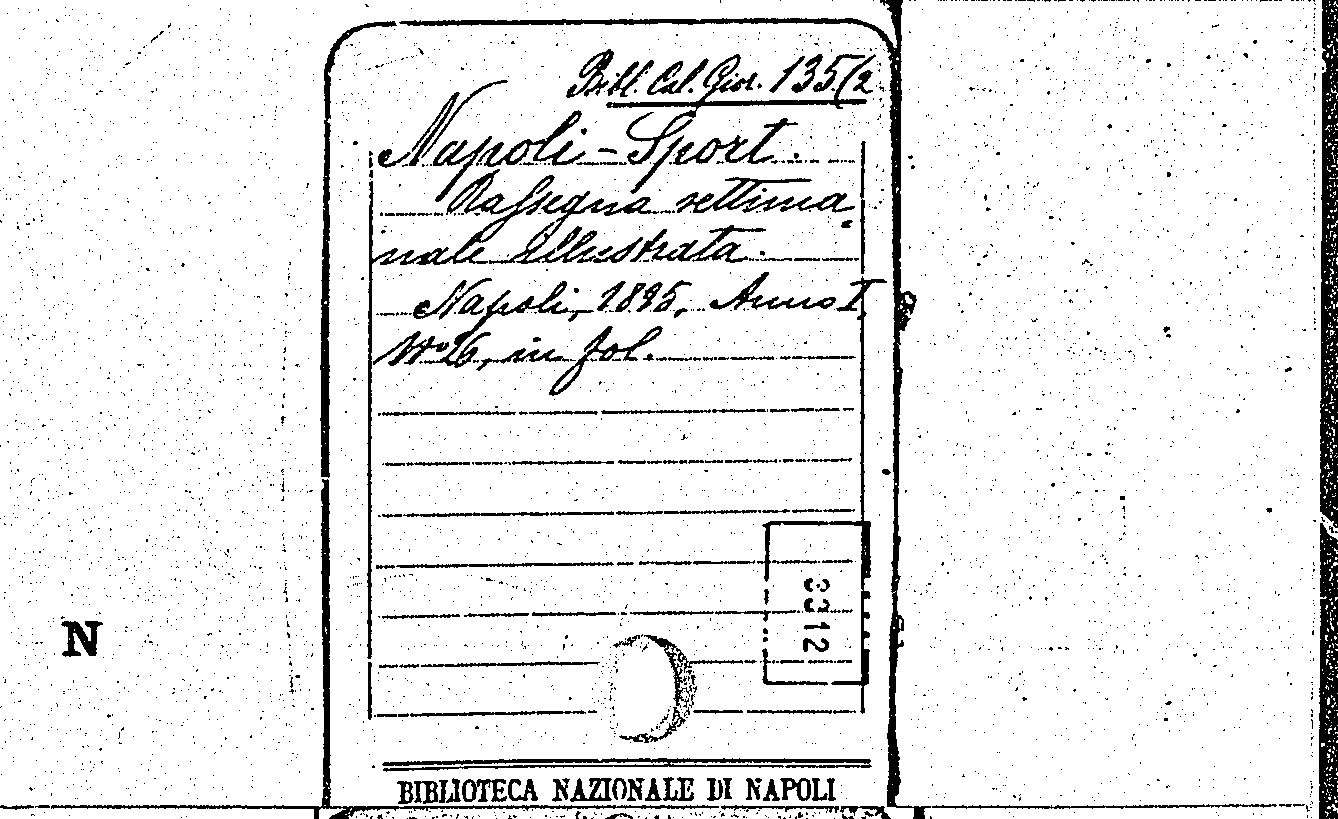 Bibl. Cal. Gior. 135/2
Napoli-Sport.
Rassegna settima-
nale illustrata.
Napoli, 1895, Anno I,
Nº 26, in fol.
3312
N
BIBLIOTECA NAZIONALE DI NAPOLI